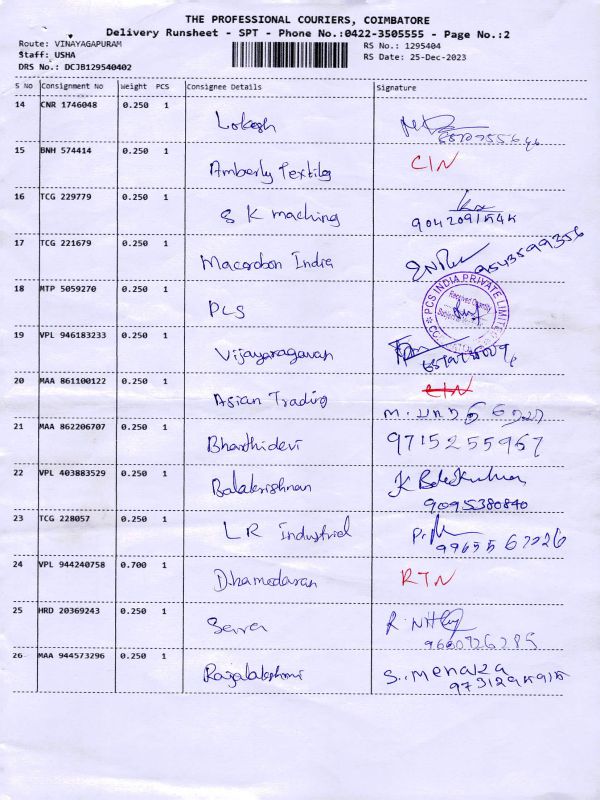 THE PROFESSIONAL COURIERS, COIMBATORE
Delivery Runsheet - SPT - Phone No.:0422-3505555 - Page No.:2
Route: VINAYAGAPURAM
Staff: USHA
DRS No.: DCJB129540402
RS No.: 1295404
RS Date: 25-Dec-2023
S No Consignment No Weight PCS Consignee Details Signature
14 CNR 1746048 0.250 1 Lokesh
15 BNH 574414 0.250 1 Amberly Textiles CIN
16 TCG 229779 0.250 1 S K maching
17 TCG 221679 0.250 1 Macarobon India 9543599356
18 MTP 5059270 0.250 1 PCS
PCS INDIA PRIVATE LIMITED
Received Quantity
19 VPL 946183233 0.250 1 Vijayaragavan
20 MAA 861100122 0.250 1 Asian Trading CIN
21 MAA 862206707 0.250 1 Bharthidevi 9715255967
22 VPL 403883529 0.250 1 Balakrishnan K Balakrishnan
9095380840
23 TCG 228057 0.250 1 LR Industrial
99655 67226
24 VPL 944240758 0.700 1 Dhamodaran RTN
25 HRD 20369243 0.250 1
26 MAA 944573296 0.250 1 Rajalakshmi S. Menaka